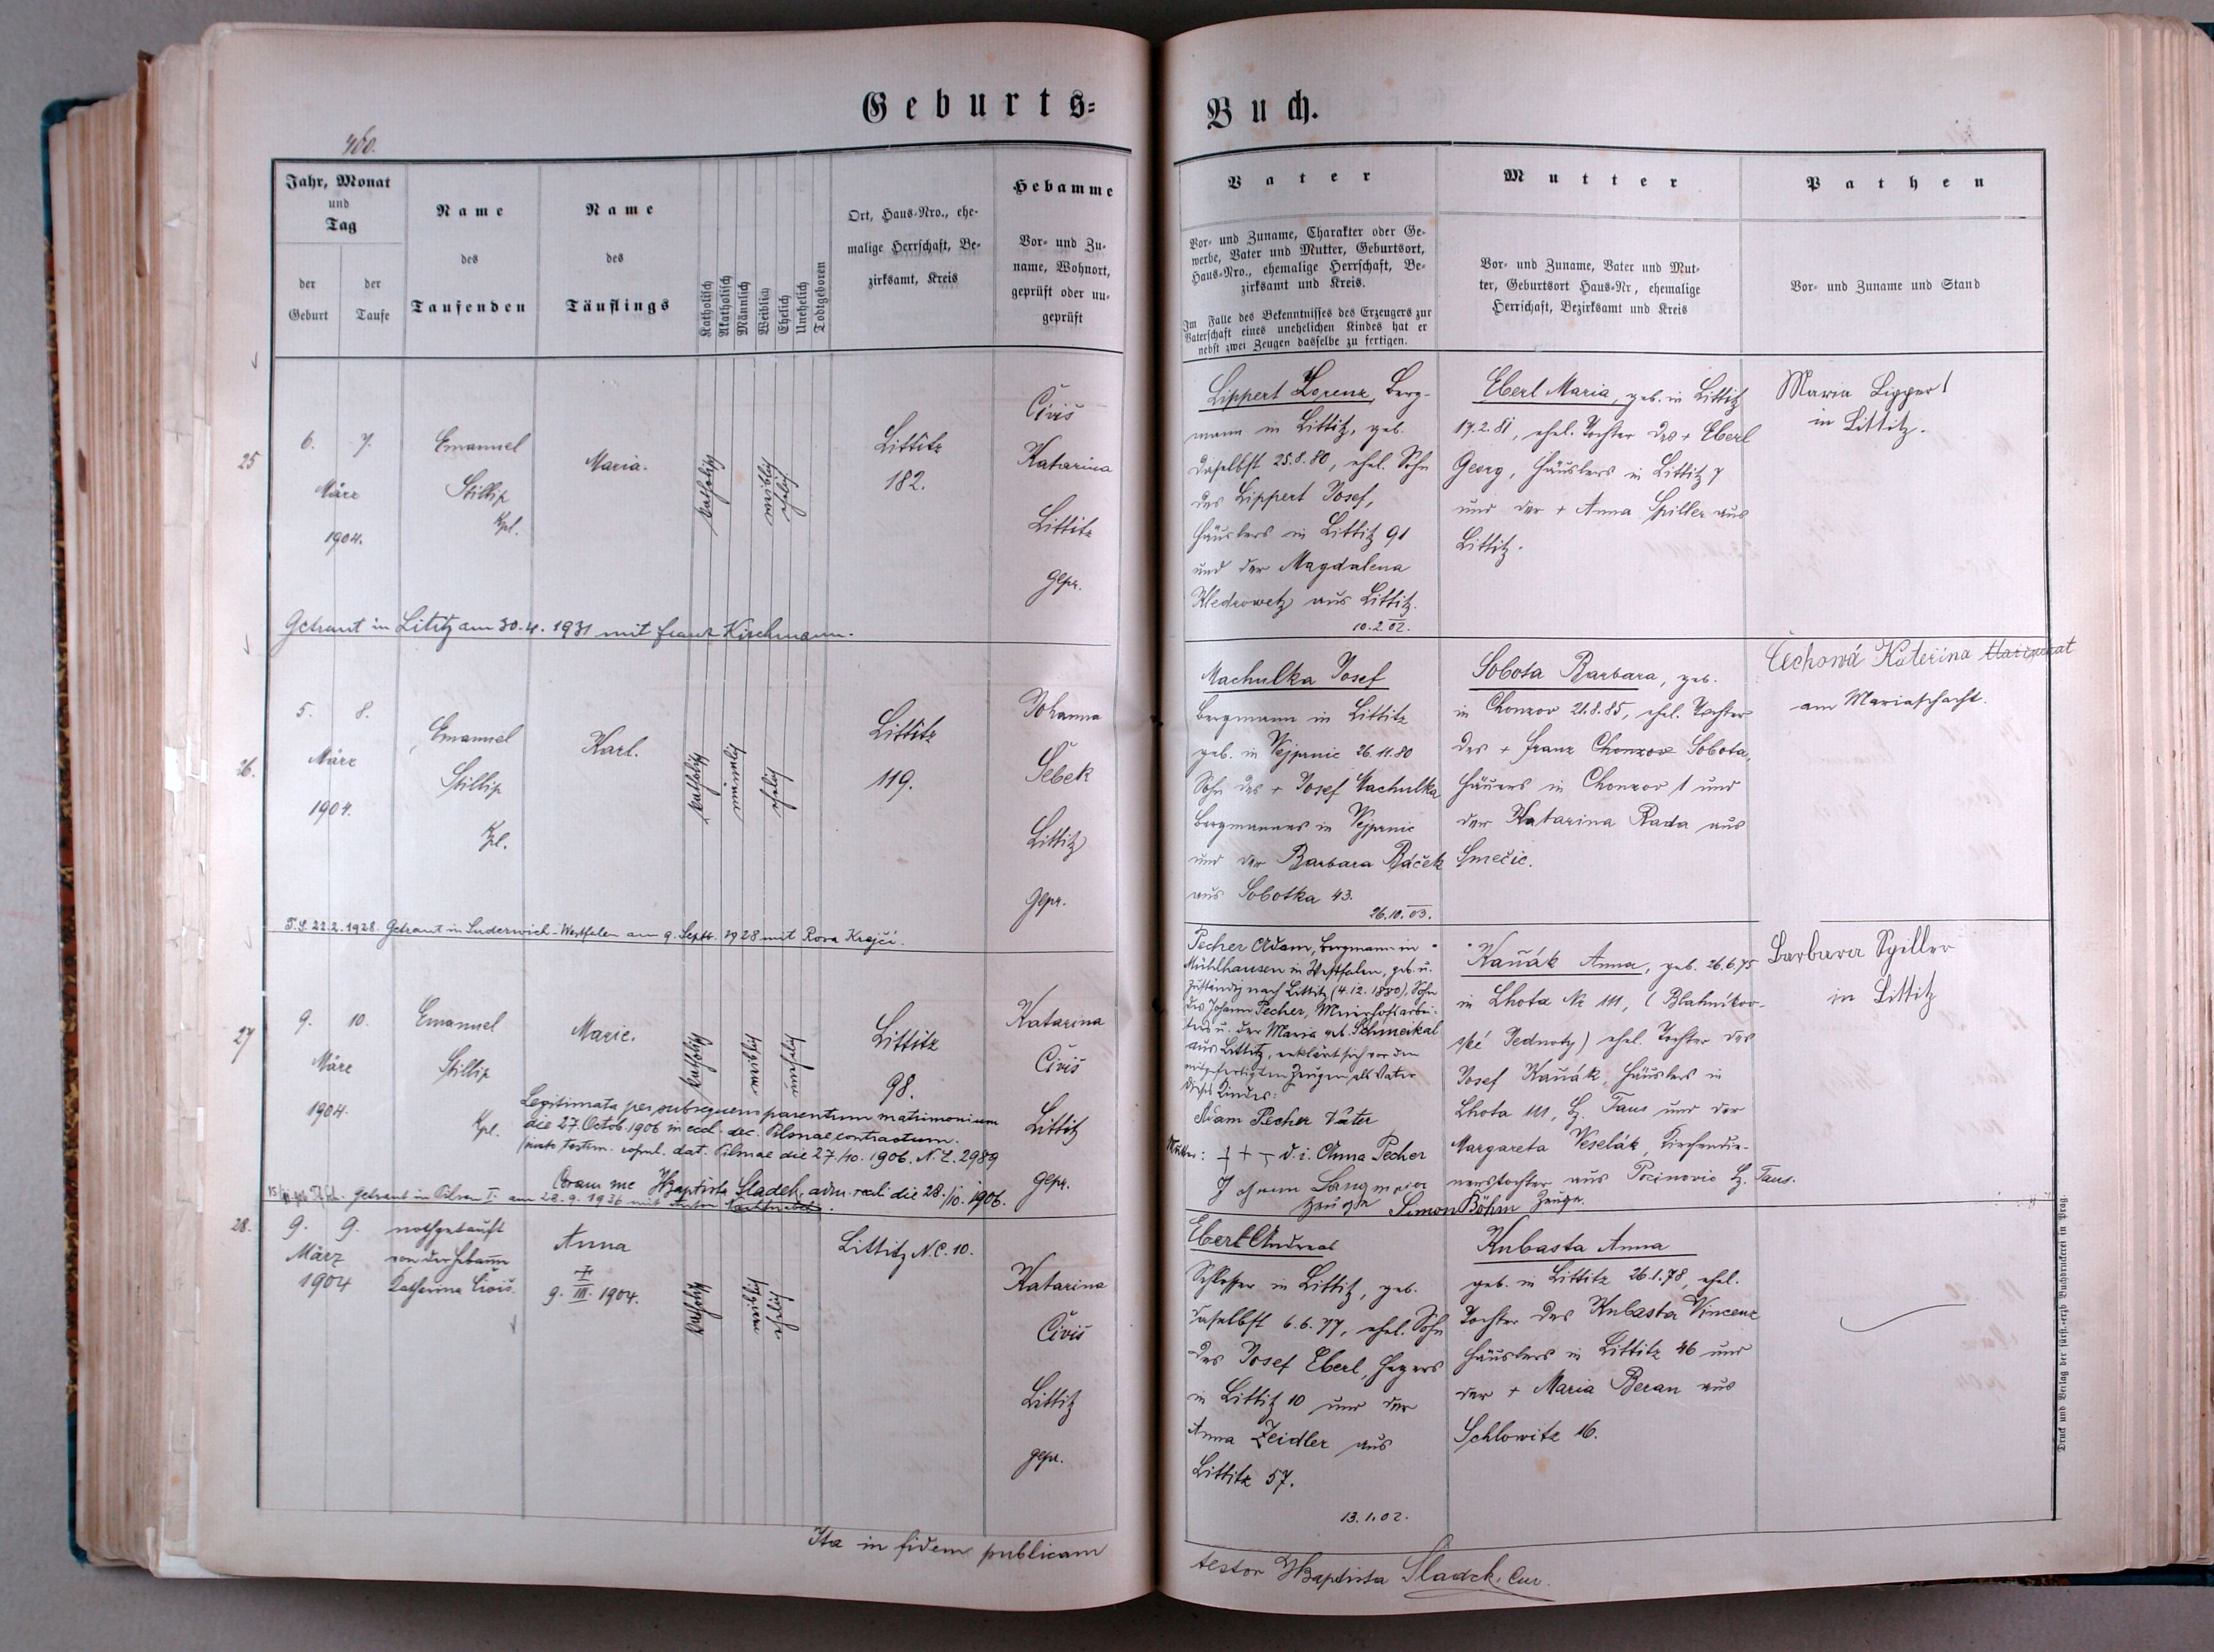 Geburts=
Buch.
460.
Jahr, Monat
und
Tag
der
Geburt
der
Taufe
Name
des
Taufenden
Name
des
Täuflings
Katholisch
Akatholisch
Männlich
Weiblich
Ehelich
Unehelich
Todtgeboren
Ort, Haus-Nro., ehe-
malige Herrschaft, Be-
zirksamt, Kreis
Hebamme
Vor- und Zu-
name, Wohnort,
geprüft oder un-
geprüft
Vater
Vor- und Zuname, Charakter oder Ge-
werbe, Vater und Mutter, Geburtsort,
Haus-Nro., ehemalige Herrschaft, Be-
zirksamt und Kreis.
Im Falle des Bekenntnisses des Erzeugers zur
Vaterschaft eines unehelichen Kindes hat er
nebst zwei Zeugen dasselbe zu fertigen.
Mutter
Vor- und Zuname, Vater und Mut-
ter, Geburtsort Haus-Nr, ehemalige
Herrschaft, Bezirksamt und Kreis
Pathen
Vor- und Zuname und Stand
25
6. 7.
März
1904.
Emanuel
Stillip
Kpl.
Maria.
katholisch
weiblich
ehelich
Littitz
182.
Civiš
Katarina
Littitz
gepr.
Lippert Lorenz, Berg-
mann in Littitz, geb.
daselbst 25.8.80, ehel. Sohn
des Lippert Josef,
Häuslers in Littitz 91
und der Magdalena
Kledrowetz aus Littitz.
10.2.02.
Eberl Maria, geb. in Littitz
17.2.81, ehel. Tochter des + Eberl
Georg, Häuslers in Littitz 7
und der + Anna Spiller aus
Littitz.
Maria Lippert
in Littitz.
Getraut in Lititz am 30.4.1931 mit Franz Kirchmann.
26.
5. 8.
März
1904.
Emanuel
Stillip
Kpl.
Karl.
katholisch
männlich
ehelich
Littitz
119.
Johanna
Šebek
Littitz
gepr.
Machulka Josef
Bergmann in Littitz
geb. in Vejprnic 26.11.80
Sohn des + Josef Machulka
Bergmannes in Vejprnic
und der Barbara Bäček
aus Sobotka 43.
26.10.03.
Sobota Barbara, geb.
in Chonzov 21.8.85, ehel. Tochter
des + Franz Chonzov Sobota,
Häuers in Chonzov 1 und
der Katarina Rada aus
Smečic.
Čechová Kateřina
am Mariaschacht.
T.S. 22.2.1928. Getraut in Suderwich-Westfalen am 9. Septb. 1928 mit Rosa Krejčí.
27
9. 10.
März
1904.
Emanuel
Stillip
Kpl.
Marie.
katholisch
weiblich
unehelich
Littitz
98.
Katarina
Civiš
Littitz
gepr.
Legitimata per subsequens parentum matrimonium
die 27. Octob. 1906 in eccl. dec. Pilsnae contractum.
(juxta testim. copul. dat. Pilsnae die 27./10. 1906. N.E. 2989
Coram me JBaptista Sladek, adm. recli die 28./10. 1906.
getraut in Pilsen I. am 28.9.1936 mit Anton
Pecher Adam, Bergmann in
Mühlhausen in Westfalen, geb. u.
zuständig nach Littitz (4.12.1880), Sohn
des Johann Pecher, Meierhofsarbei-
ters u. der Maria geb. Schmeikal
aus Littitz, erklärt sich vor den
mitgefertigten Zeugen als Vater
dieses Kindes:
Adam Pecher Vater
Mutter: + + + d.i. Anna Pecher
Johann Langmaier
Zeuge Simon Böhm Zeuge.
Kaňák Anna, geb. 26.6.75
in Lhota No 111, (Blatnikov-
ské Jednoty) ehel. Tochter des
Josef Kaňák, Häuslers in
Lhota 111, Bz. Taus und der
Margareta Veselák, Kirchendie-
nerstochter aus Pocinovic Bz. Taus.
Barbara Spiller
in Littitz
28.
9. 9.
März
1904
nothgetauft
von der Hebamme
Katharina Civiš.
Anna
+
9. III. 1904.
katholisch
weiblich
ehelich
Littitz N.C. 10.
Katarina
Civiš
Littitz
gepr.
Eberl Andreas
Schlosser in Littitz, geb.
daselbst 6.6.77, ehel. Sohn
des Josef Eberl, Hegers
in Littitz 10 und der
Anna Zeidler aus
Littitz 57.
13.1.02.
Kubasta Anna
geb. in Littitz 26.1.78, ehel.
Tochter des Kubasta Vincenz
Häuslers in Littitz 46 und
der + Maria Beran aus
Schlowitz 16.
Ita in fidem publicam
testor JBaptista Sladek, Cur.
Druck und Verlag der fürst.-erzb Buchdruckerei in Prag.